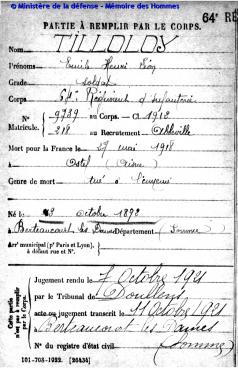 © Ministère de la défense - Mémoire des Hommes
64e RÉ
PARTIE À REMPLIR PAR LE CORPS.
Nom TILLOLOY
Prénoms Emile Henri Léon
Grade soldat
Corps Régiment d'Infanterie
N° 9739 au Corps. — Cl. 1912
Matricule. 218 au Recrutement Abbeville
Mort pour la France le 27 mai 1918
à Ostel (Aisne)
Genre de mort tué à l'ennemi
Né le 23 octobre 1892
à Berteaucourt les Dames Département (Somme)
Arrt municipal (pr Paris et Lyon),
à défaut rue et N°.
Cette partie
n'est pas à remplir
par le Corps.
Jugement rendu le 7 Octobre 1921
par le Tribunal de Doullens
acte ou jugement transcrit le 11 Octobre 1921
à Berteaucourt les Dames
(Somme)
N° du registre d'état civil
101-708-1922. [26434]